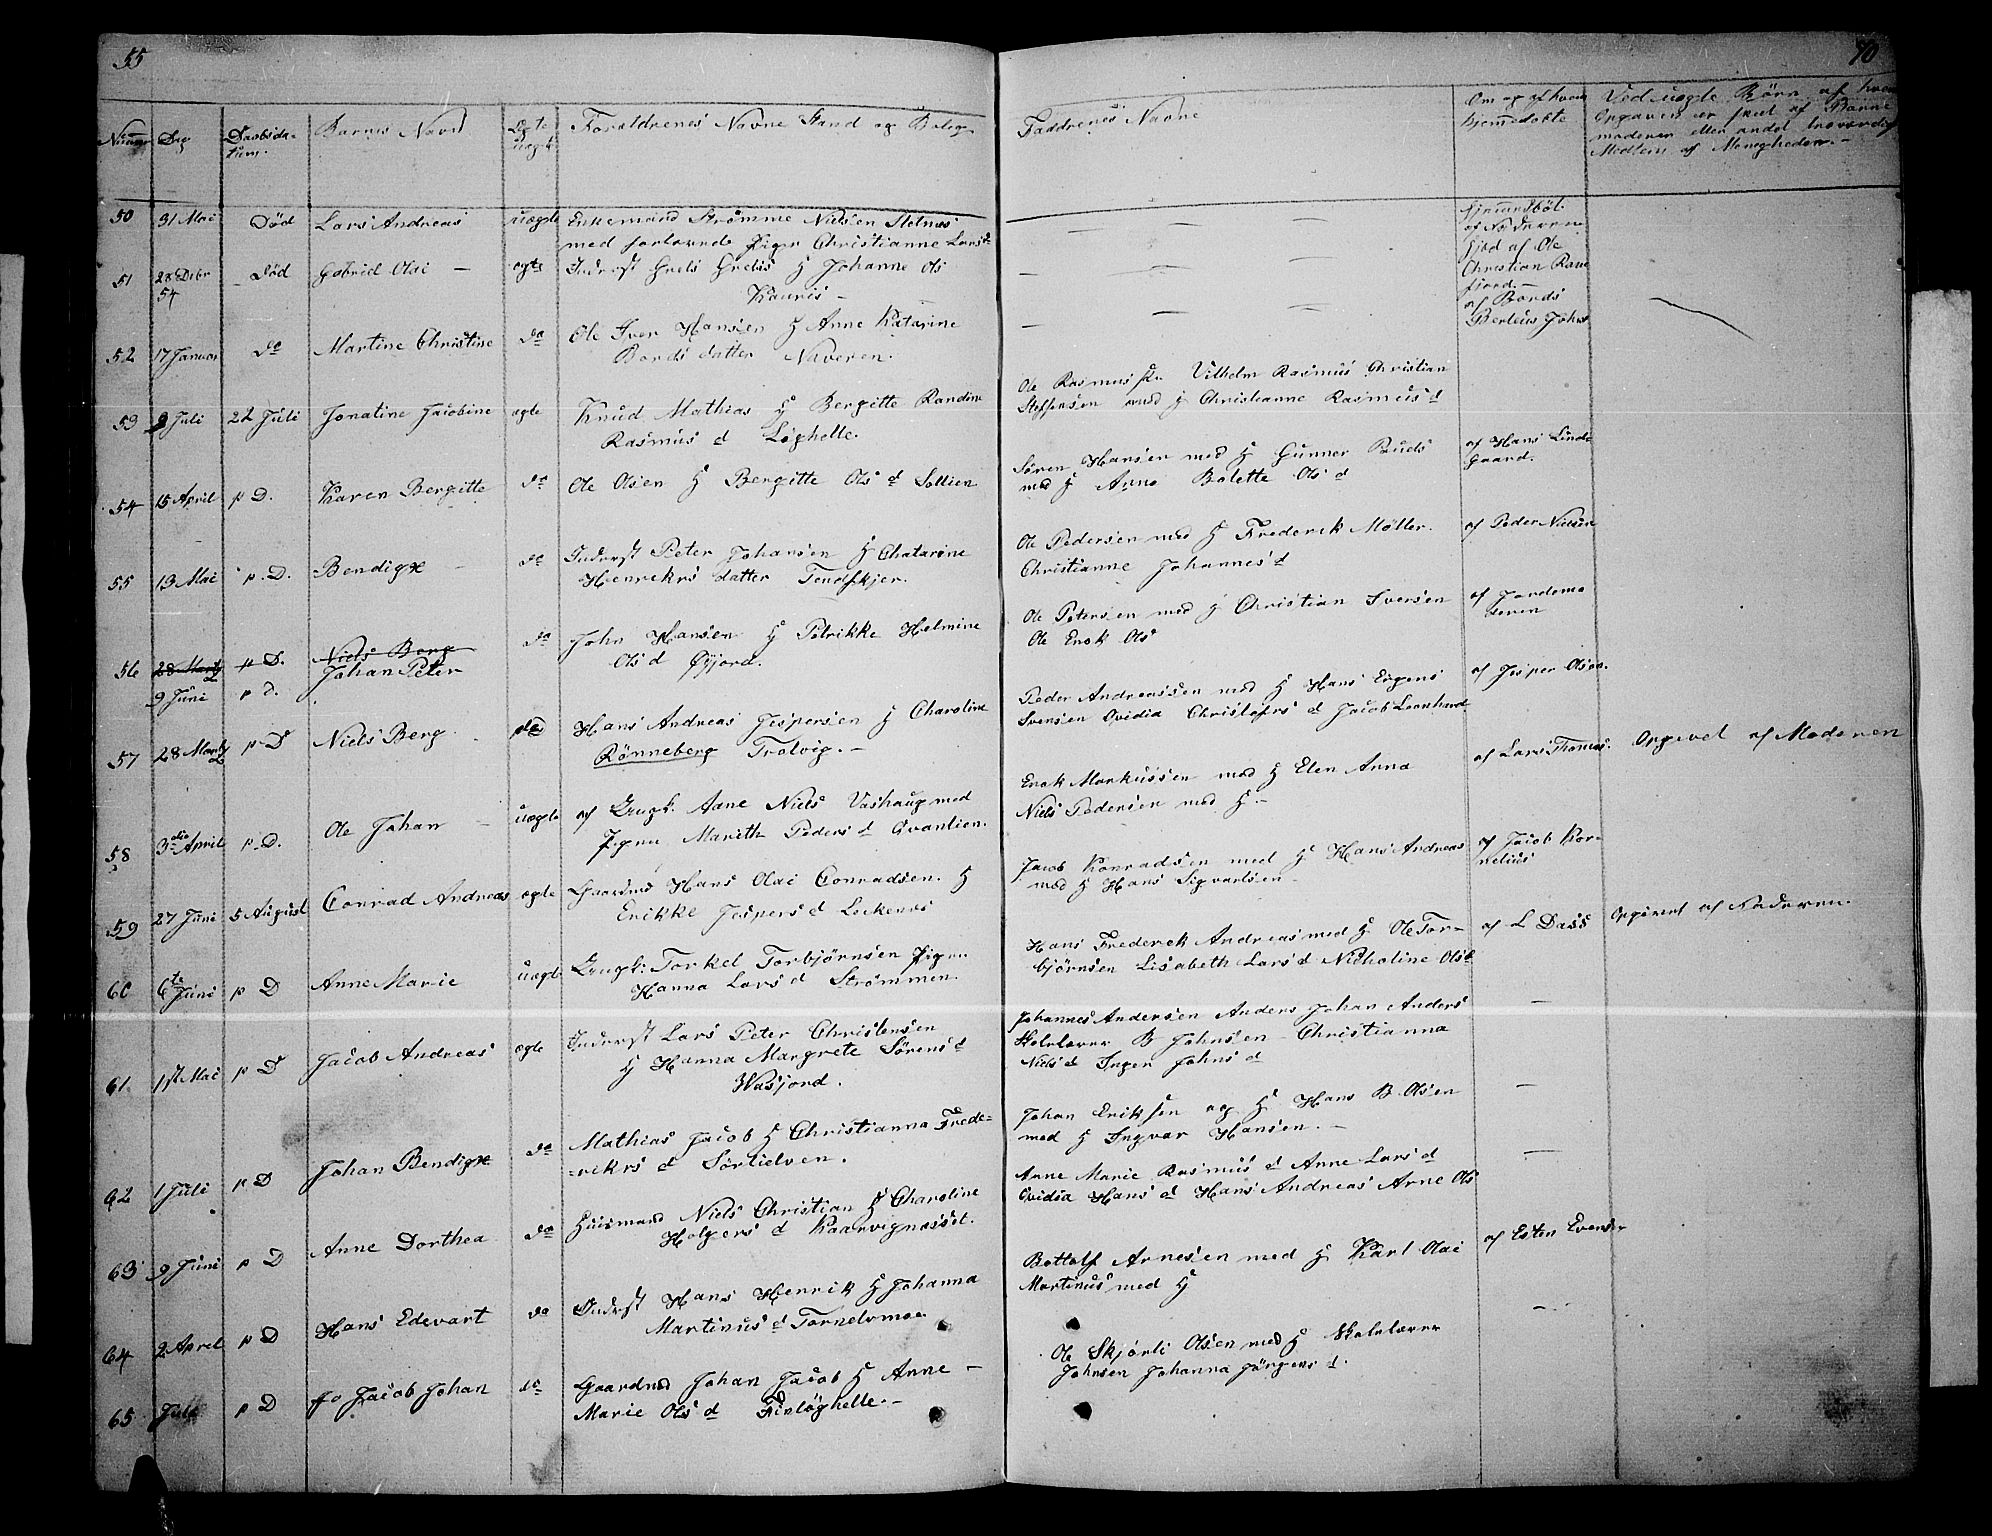 55
70
Numer Dag Daabsda- Barnets Navn Ægte Foraldrenes Navne Stand og Bolig
tum. uægt
Faddrenes Navne
Om og af hvem
hjemmedøbte
Ved uægte Børn af hvem
Opgaven er skeet af Barne
moderen eller andet troværdig
Medlem af Menigheden.-
50 31 Mai Død Lars Andreas uægte Enkemand Strømme Nielsen Slotnæs
med forlovede Pigen Christianne Lars
af Faderen
51 28 Debr Død Gabriel Olai - ægte Inderst Grels Grelss H Johanne Ols
54 Kauris -
gjød af Ole
Christian Rane
fjord.-
52 17 Januar do Martine Christine do Ole Iver Hansen H Anne Katarine
Bords datter Naveren.
af Bords
Berteus Johns
53 9 Juli 22 Juli Jonatine Jacobine ægte Knud Mathias H Bergitte Randine
Rasmus d Løghelle.
Ole Rasmus Vilhelm Rasmus Christian
Steffensen med H Christianne Rasmus d
54 15 April p D. Karen Bergitte do Ole Olsen H Bergitte Ols d Sollien
Søren Hansen med H Gunner Pauds
med H Anna Bolette Ols d
af Hans Lind-
gaard.
55 13 Mai p. D. Bendigx - do Inderst Peter Johansen H Chatarine
Henrekrs datter Tendskjer.
Ole Pedersen med H Frederik Møller.
Christianne Johannes d
af Peder Nielsen
56 28 Marty p D. Niels Berg do John Hansen H Petrikke Helmine
9 Juni p D. Johan Peter Ols d Øyjord.
Ole Petersen med H Christian Iversen
Ole Enok Ols
af Jordemo
deren
57 28 Marty p D Niels Berg do Hans Andreas Jespersen H Charoline
Rønneberg Trolvig.-
Peder Andreassen med H Hans Eugens
Svensen Ovidia Christofers d Jacob Leonhard
af Jesper Olsen.
58 3die April p. D. Ole Johan - uægte af Ungk. Aane Niels Vashaug med
Pigen Marith Peders d Qvantien.
Enok Markussen med H Elen Anna
Niels Pedersen med H.-
af Lars Thomas. Opgivet af Moderen
59 27 Juni 5 August Conrad Andreas ægte Gaardmd Hans Olai Conradsen. H
Erikke Jespers d Leekenes
Jacob Konradsen med H Hans Andreas
med H Hans Sigvartsen -
af Jacob Kor-
nelius
60 6te Juni p D Anne Marie uægte Ungk: Torkel Torbjørnsen Pigen
Hanna Lars d Strømmen.
Hans Frederek Andreas med H Ole Tor-
bjørnsen Lisabeth Lars d Nicholine Ols d
af L Dass Opgivet af Faderen.
61 1st Mai p D Jacob Andreas ægte Inderst Lars Peter Christensen
H Hanna Margrete Sørens d
Wasjord.
Johannes Andersen Anders Johan Anders
Skolelærer B Johnsen - Christianna
Niels d Inger Johns d
62 1 Juli p D Johan Bendigx do Mathias Jacob H Christianna Frede-
-rikrs d Sørtielven.
Johan Eriksen og H Hans B Olsen
med H Ingvar Hansen.-
63 9 Juni p D Anne Dorthea do Huusmand Niels Christian H Charoline
Holgers d Kaarvignesset.
Anne Marie Rasmus d Anne Lars d
Ovidia Hans d Hans Andreas Arne Ols
64 2 April p D Hans Edevart do Inderst Hans Henrik H Johanna
Martinus d Tornelvmoe
Bottolf Arnesen med H Karl Olai
Martinus med H
af Esten Evensen
65 Juli p D Jacob Johan do Gaardmd Johan Jacob H Anne -
Marie Ols d Finløghelle.-
Ole Skjørli Olsen med H Skolelærer
Johnsen Johanna Jørgens d.